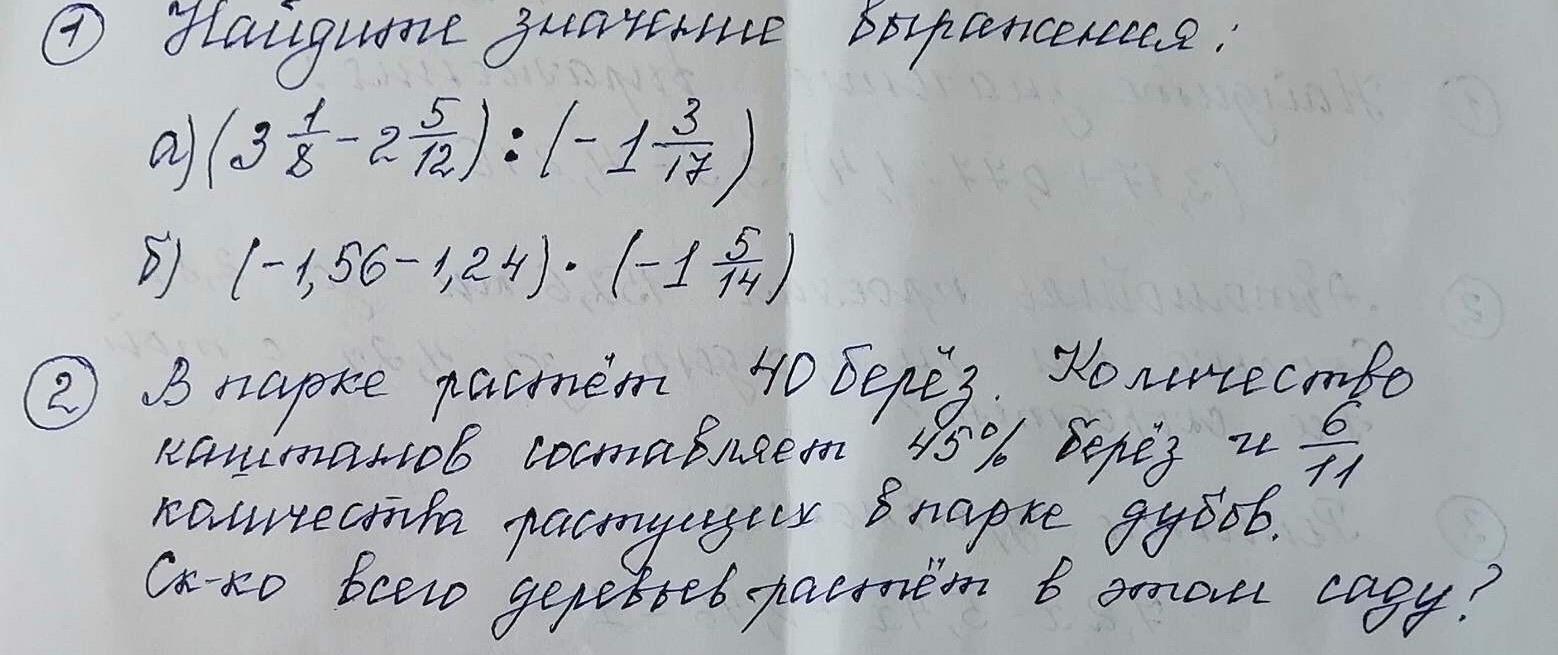 ① Найдите значение выражения:
а) (3 1/8 - 2 5/12) : (-1 3/17)
б) (-1,56-1,24) · (-1 5/14)
② В парке растёт 40 берёз. Количество
каштанов составляет 45% берёз и 6/11
количества растущих в парке дубов.
Ск-ко всего деревьев растёт в этом саду?